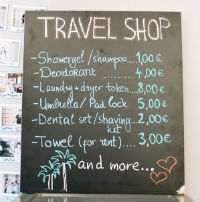 TRAVEL SHOP
-Showergel/shampoo....1,00€
-Deodorant ..........4,00€
-Laundry+dryer token...8,00€
-Umbrella/Pad lock 5,00€
-Dental set/shaving kit 2,00€
-Towel (for rent).... 3,00€
and more...